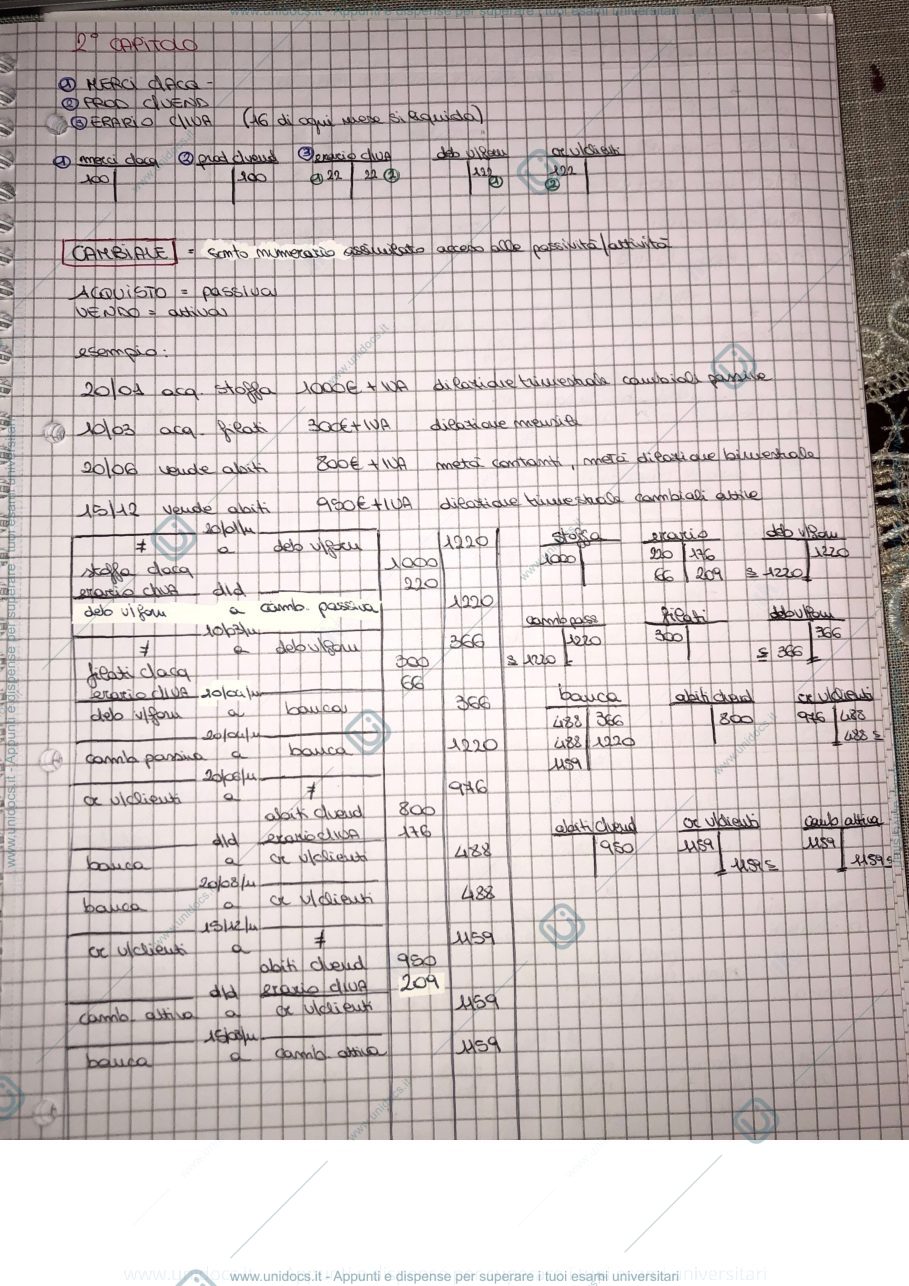 www.unidocs.it - Appunti e dispense per superare i tuoi esami universitari
2° CAPITOLO
① MERCI C/ACQ -
② PROD C/VEND
③ ERARIO C/IVA (16 di ogni mese si liquida)
① merci c/acq ② prod c/vend ③ erario c/IVA deb v/forn cr v/clienti
100 100 ① 22 22 ② 122 ① 122 ②
CAMBIALE = conto numerario assimilato acceso alle passività/attività
ACQUISTO = passiva
VENDO = attiva
esempio:
20/01 acq. stoffa 1000€ + IVA dilazione trimestrale cambiali passive
10/03 acq. filati 300€ + IVA dilazione mensile
20/06 vende abiti 800€ + IVA metà contanti, metà dilazione bimestrale
15/12 vende abiti 950€ + IVA dilazione trimestrale cambiali attive
20/01/n
≠ a deb v/forn 1220
stoffa c/acq 1000
erario c/IVA 220
d/d
deb v/forn a camb. passiva 1220
10/03/n
≠ a deb v/forn 366
filati c/acq 300
erario c/IVA 66
10/04/n
deb v/forn a banca 366
20/04/n
camb passiva a banca 1220
20/06/n
cr v/clienti a ≠ 976
abiti c/vend 800
erario c/IVA 176
d/d
banca a cr v/clienti 488
20/08/n
banca a cr v/clienti 488
15/12/n
cr v/clienti a ≠ 1159
abiti c/vend 950
erario c/IVA 209
d/d
camb. attiva a cr v/clienti 1159
15/03/n
banca a camb. attiva 1159
stoffa erario deb v/forn
1000 220 176 1220
66 209 s 1220
camb pass filati deb v/forn
1220 300 366
s 1220 s 366
banca abiti c/vend cr v/clienti
488 366 800 976 488
488 1220 488 s
1159
abiti c/vend cr v/clienti camb attiva
950 1159 1159
1159 s 1159 s
www.unidocs.it - Appunti e dispense per superare i tuoi esami universitari